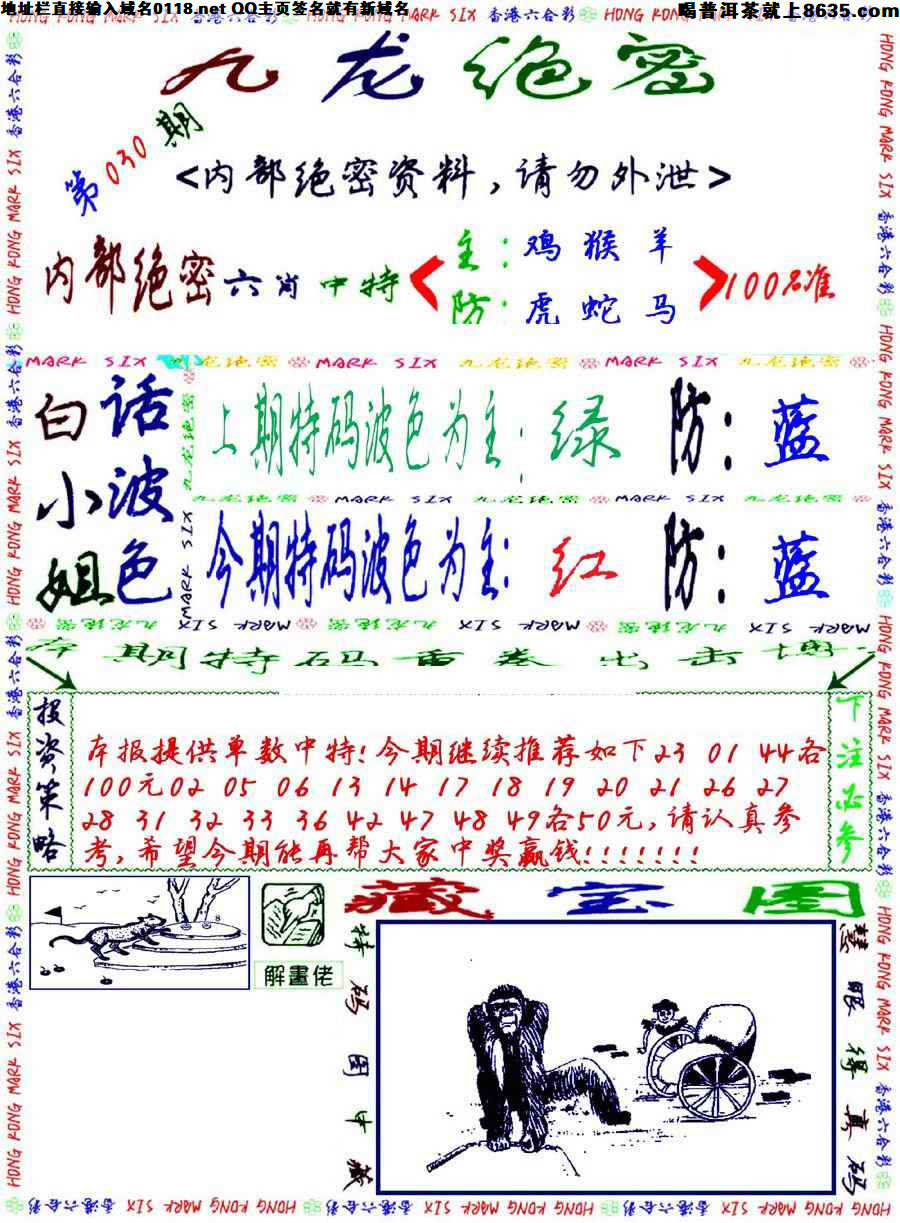 地址栏直接输入域名0118.net QQ主页签名就有新域名
喝普洱茶就上8635.com
香港六合彩 HONG KONG MARK SIX
九龙绝密
第030期
<内部绝密资料,请勿外泄>
内部绝密六肖中特
主:鸡 猴 羊
防:虎 蛇 马
100%准
MARK SIX 九龙绝密 MARK SIX 九龙绝密 MARK SIX 九龙绝密
白话
小波
姐色
上期特码波色为主:绿 防:蓝
九龙绝密 MARK SIX 九龙绝密 MARK SIX 九龙绝密
今期特码波色为主:红 防:蓝
九龙绝密 MARK SIX 九龙绝密 MARK SIX 九龙绝密 MARK SIX
本期特码重卷出击
投资策略
本报提供单数中特!今期继续推荐如下23 01 44各
100元02 05 06 13 14 17 18 19 20 21 26 27
28 31 32 33 36 42 47 48 49各50元,请认真参
考,希望今期能再帮大家中奖赢钱!!!!!!!
下注必参
8
解畫佬
藏宝图
特码图中藏
慧眼得真码
HONG KONG MARK SIX 香港六合彩